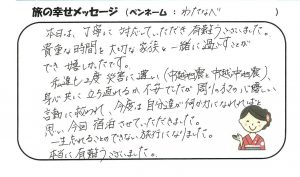 旅の幸せメッセージ（ペンネーム：わたなべ）
本日は、丁寧に対応していただき有難うございました。
貴重な時間を大切な家族と一緒に過ごすことが
でき嬉しかったです。
私達も2度災害に遭い（中越地震と中越沖地震）、
身心共に立ち直れるか不安でしたが周りの方の心優しい
言動に救われ、今度は自分達が何か力になれればと
思い、今回宿泊させていただきました。
一生忘れることのできない旅行になりました。
本当に有難うございました。